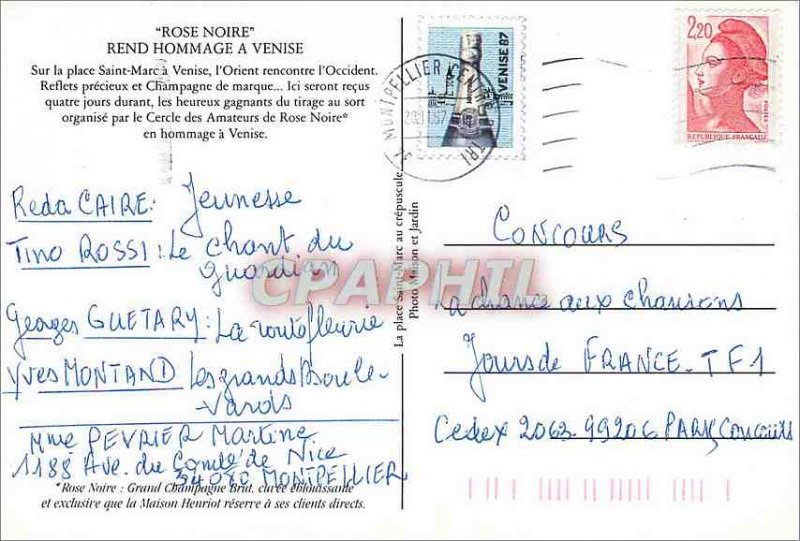 "ROSE NOIRE"
REND HOMMAGE A VENISE
Sur la place Saint-Marc à Venise, l'Orient rencontre l'Occident.
Reflets précieux et Champagne de marque... Ici seront reçus
quatre jours durant, les heureux gagnants du tirage au sort
organisé par le Cercle des Amateurs de Rose Noire*
en hommage à Venise.
VENISE 87
MONTPELLIER
2,20
POSTES
REPUBLIQUE FRANÇAISE
Reda CAIRE: Jeunesse
Tino ROSSI: Le chant du
guardian
Georges GUETARY: La route fleurie
Yves MONTAND Les grands Boule-
vards
Mme PEVRIER Martine
1188 Ave. du Comté de Nice
34080 MONTPELLIER
*Rose Noire : Grand Champagne Brut, cuvée éblouissante
et exclusive que la Maison Henriot réserve à ses clients directs.
La place Saint-Marc au crépuscule
Photo Maison et Jardin
CONCOURS
La chance aux chansons
Jours de FRANCE-TF1
Cedex 2063-99206 PARIS Concours
CPAPHIL